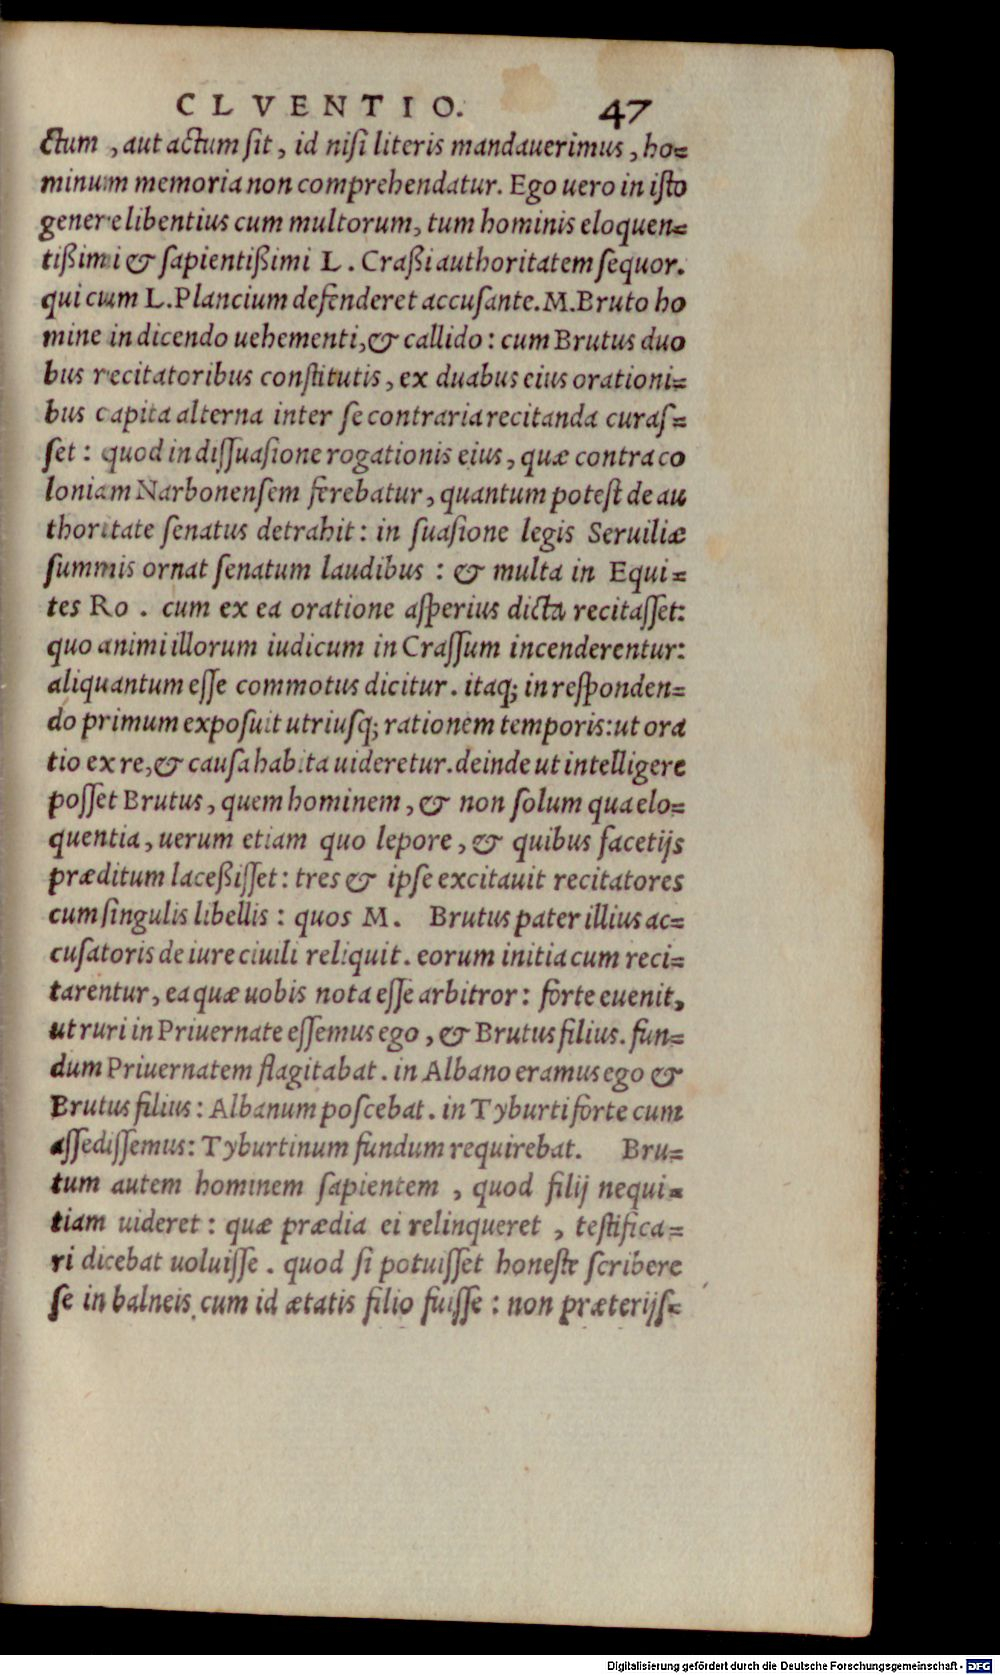 CLVENTIO. 47
ctum, aut actum sit, id nisi literis mandauerimus, ho=
minum memoria non comprehendatur. Ego uero in isto
genere libentius cum multorum, tum hominis eloquen=
tißimi & sapientißimi L. Craßi authoritatem sequor.
qui cum L. Plancium defenderet accusante. M. Bruto ho
mine in dicendo uehementi, & callido: cum Brutus duo
bus recitatoribus constitutis, ex duabus eius orationi=
bus capita alterna inter se contraria recitanda curas=
set: quod in dissuasione rogationis eius, quæ contra co
loniam Narbonensem ferebatur, quantum potest de au
thoritate senatus detrahit: in suasione legis Seruiliæ
summis ornat senatum laudibus: & multa in Equi=
tes Ro. cum ex ea oratione asperius dicta recitasset:
quo animi illorum iudicum in Crassum incenderentur:
aliquantum esse commotus dicitur. itaq; in responden=
do primum exposuit utriusq; rationem temporis: ut ora
tio ex re, & causa habita uideretur. deinde ut intelligere
posset Brutus, quem hominem, & non solum qua elo=
quentia, uerum etiam quo lepore, & quibus facetijs
præditum laceßisset: tres & ipse excitauit recitatores
cum singulis libellis: quos M. Brutus pater illius ac=
cusatoris de iure ciuili reliquit. eorum initia cum reci=
tarentur, ea quæ uobis nota esse arbitror: forte euenit,
ut ruri in Priuernate essemus ego, & Brutus filius. fun=
dum Priuernatem flagitabat. in Albano eramus ego &
Brutus filius: Albanum poscebat. in Tyburti forte cum
assedissemus: Tyburtinum fundum requirebat. Bru=
tum autem hominem sapientem, quod filij nequi=
tiam uideret: quæ prædia ei relinqueret, testifica=
ri dicebat uoluisse. quod si potuisset honeste scribere
se in balneis cum id ætatis filio fuisse: non præterijs=
Digitalisierung gefördert durch die Deutsche Forschungsgemeinschaft - DFG